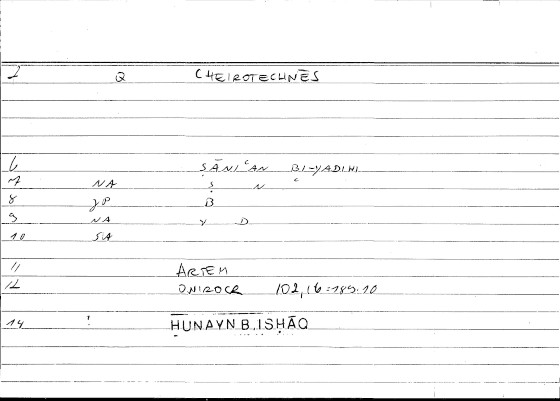 1 Q CHEIROTECHNĒS
6 ṢĀNIʿAN BI-YADIHI
7 NA Ṣ N ʿ
8 JP B
9 NA Y D
10 SA
11 ARTEM
12 ONIROCR 102,16:189.10
14 ! ḤUNAYN B. ISḤĀQ